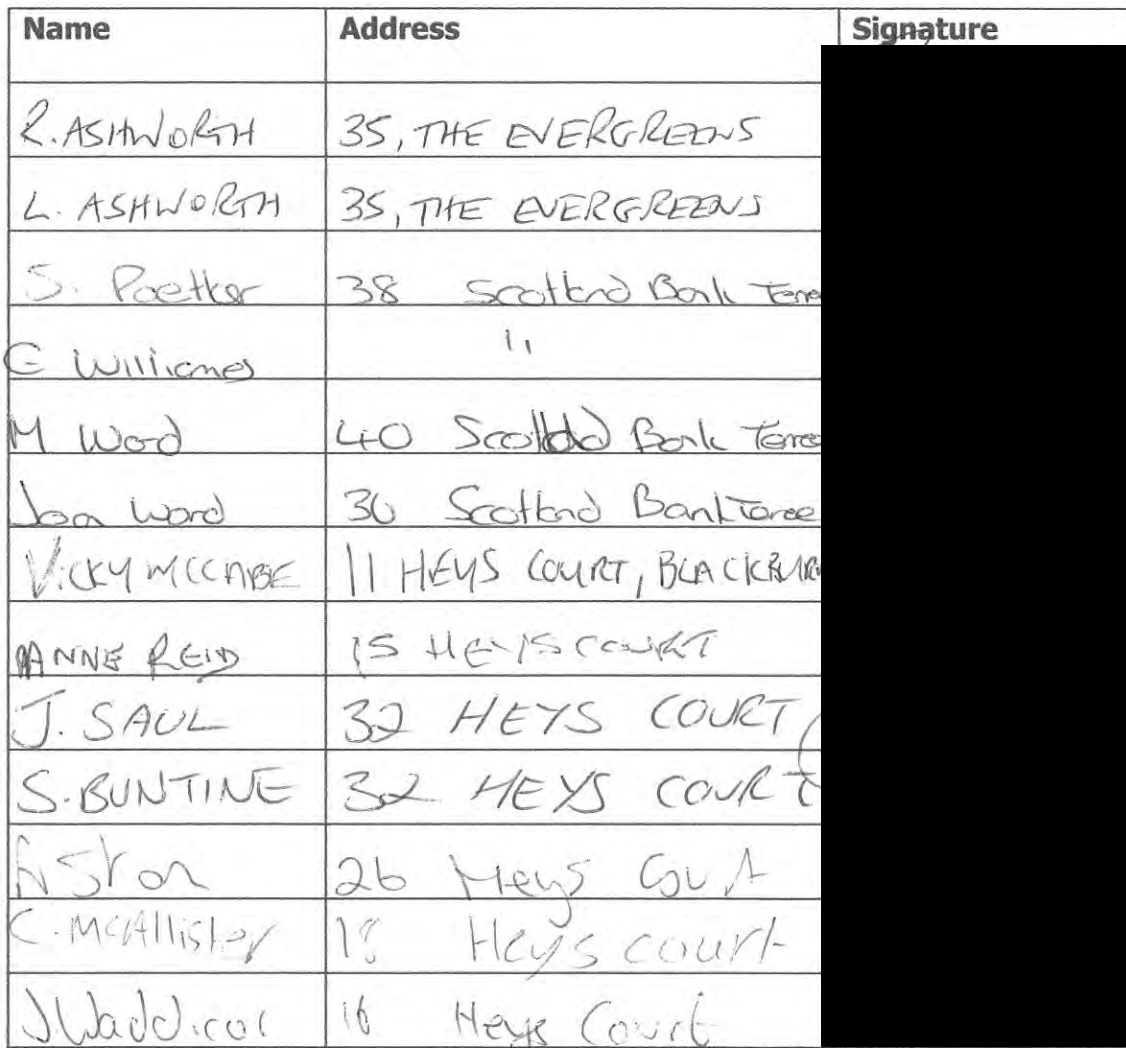 Name Address Signature
R. ASHWORTH 35, THE EVERGREENS
L. ASHWORTH 35, THE EVERGREENS
S. 38 Scotland Bank
Williams 11
M Ward 40 Scotland Bank
Ward 30 Scotland Bank
VICKY MCCABE 11 HEYS COURT, BLACKBURN
ANNE REID 15 HEYS COURT
J. SAUL 32 HEYS COURT
S. BUNTINE 32 HEYS COURT
26 Heys Court
C. McAllister 18 Heys court
16 Heys Court